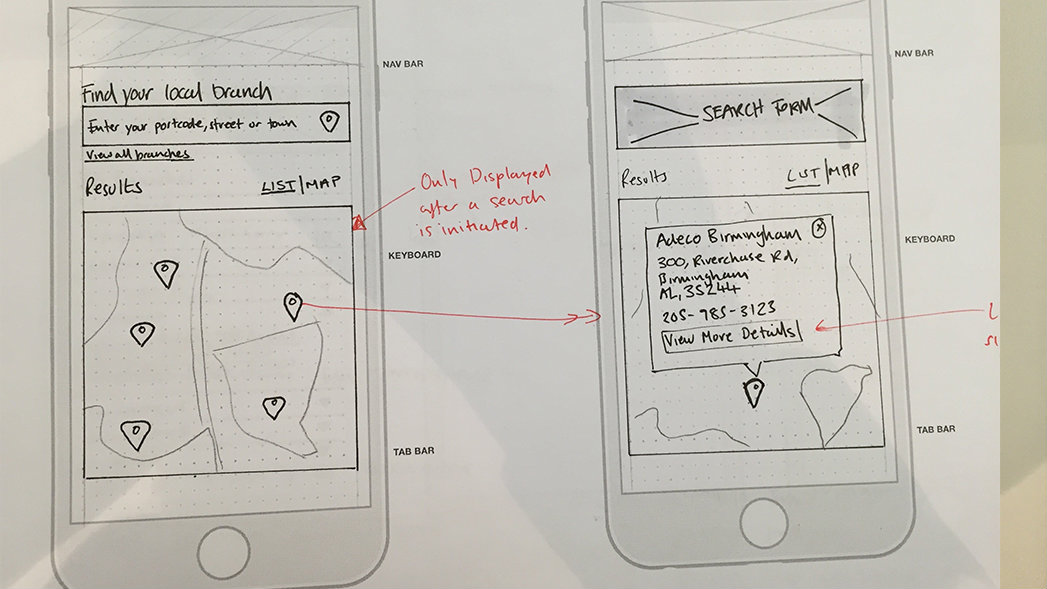 NAV BAR
Find your local branch
Enter your portcode, street or town
View all branches
Results LIST|MAP
Only Displayed
after a search
is initiated.
KEYBOARD
TAB BAR
NAV BAR
SEARCH FORM
Results LIST|MAP
Adeco Birmingham X
300, Riverchase Rd,
Birmingham
AL, 35244
205-985-3123
View More Details
KEYBOARD
TAB BAR